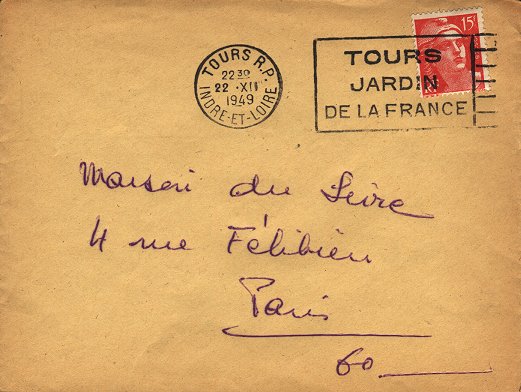 TOURS R.P.
22 30
22 · XII
1949
INDRE-ET-LOIRE
15F
TOURS
JARDIN
DE LA FRANCE
Maison du Livre
4 rue Félibien
Paris
60